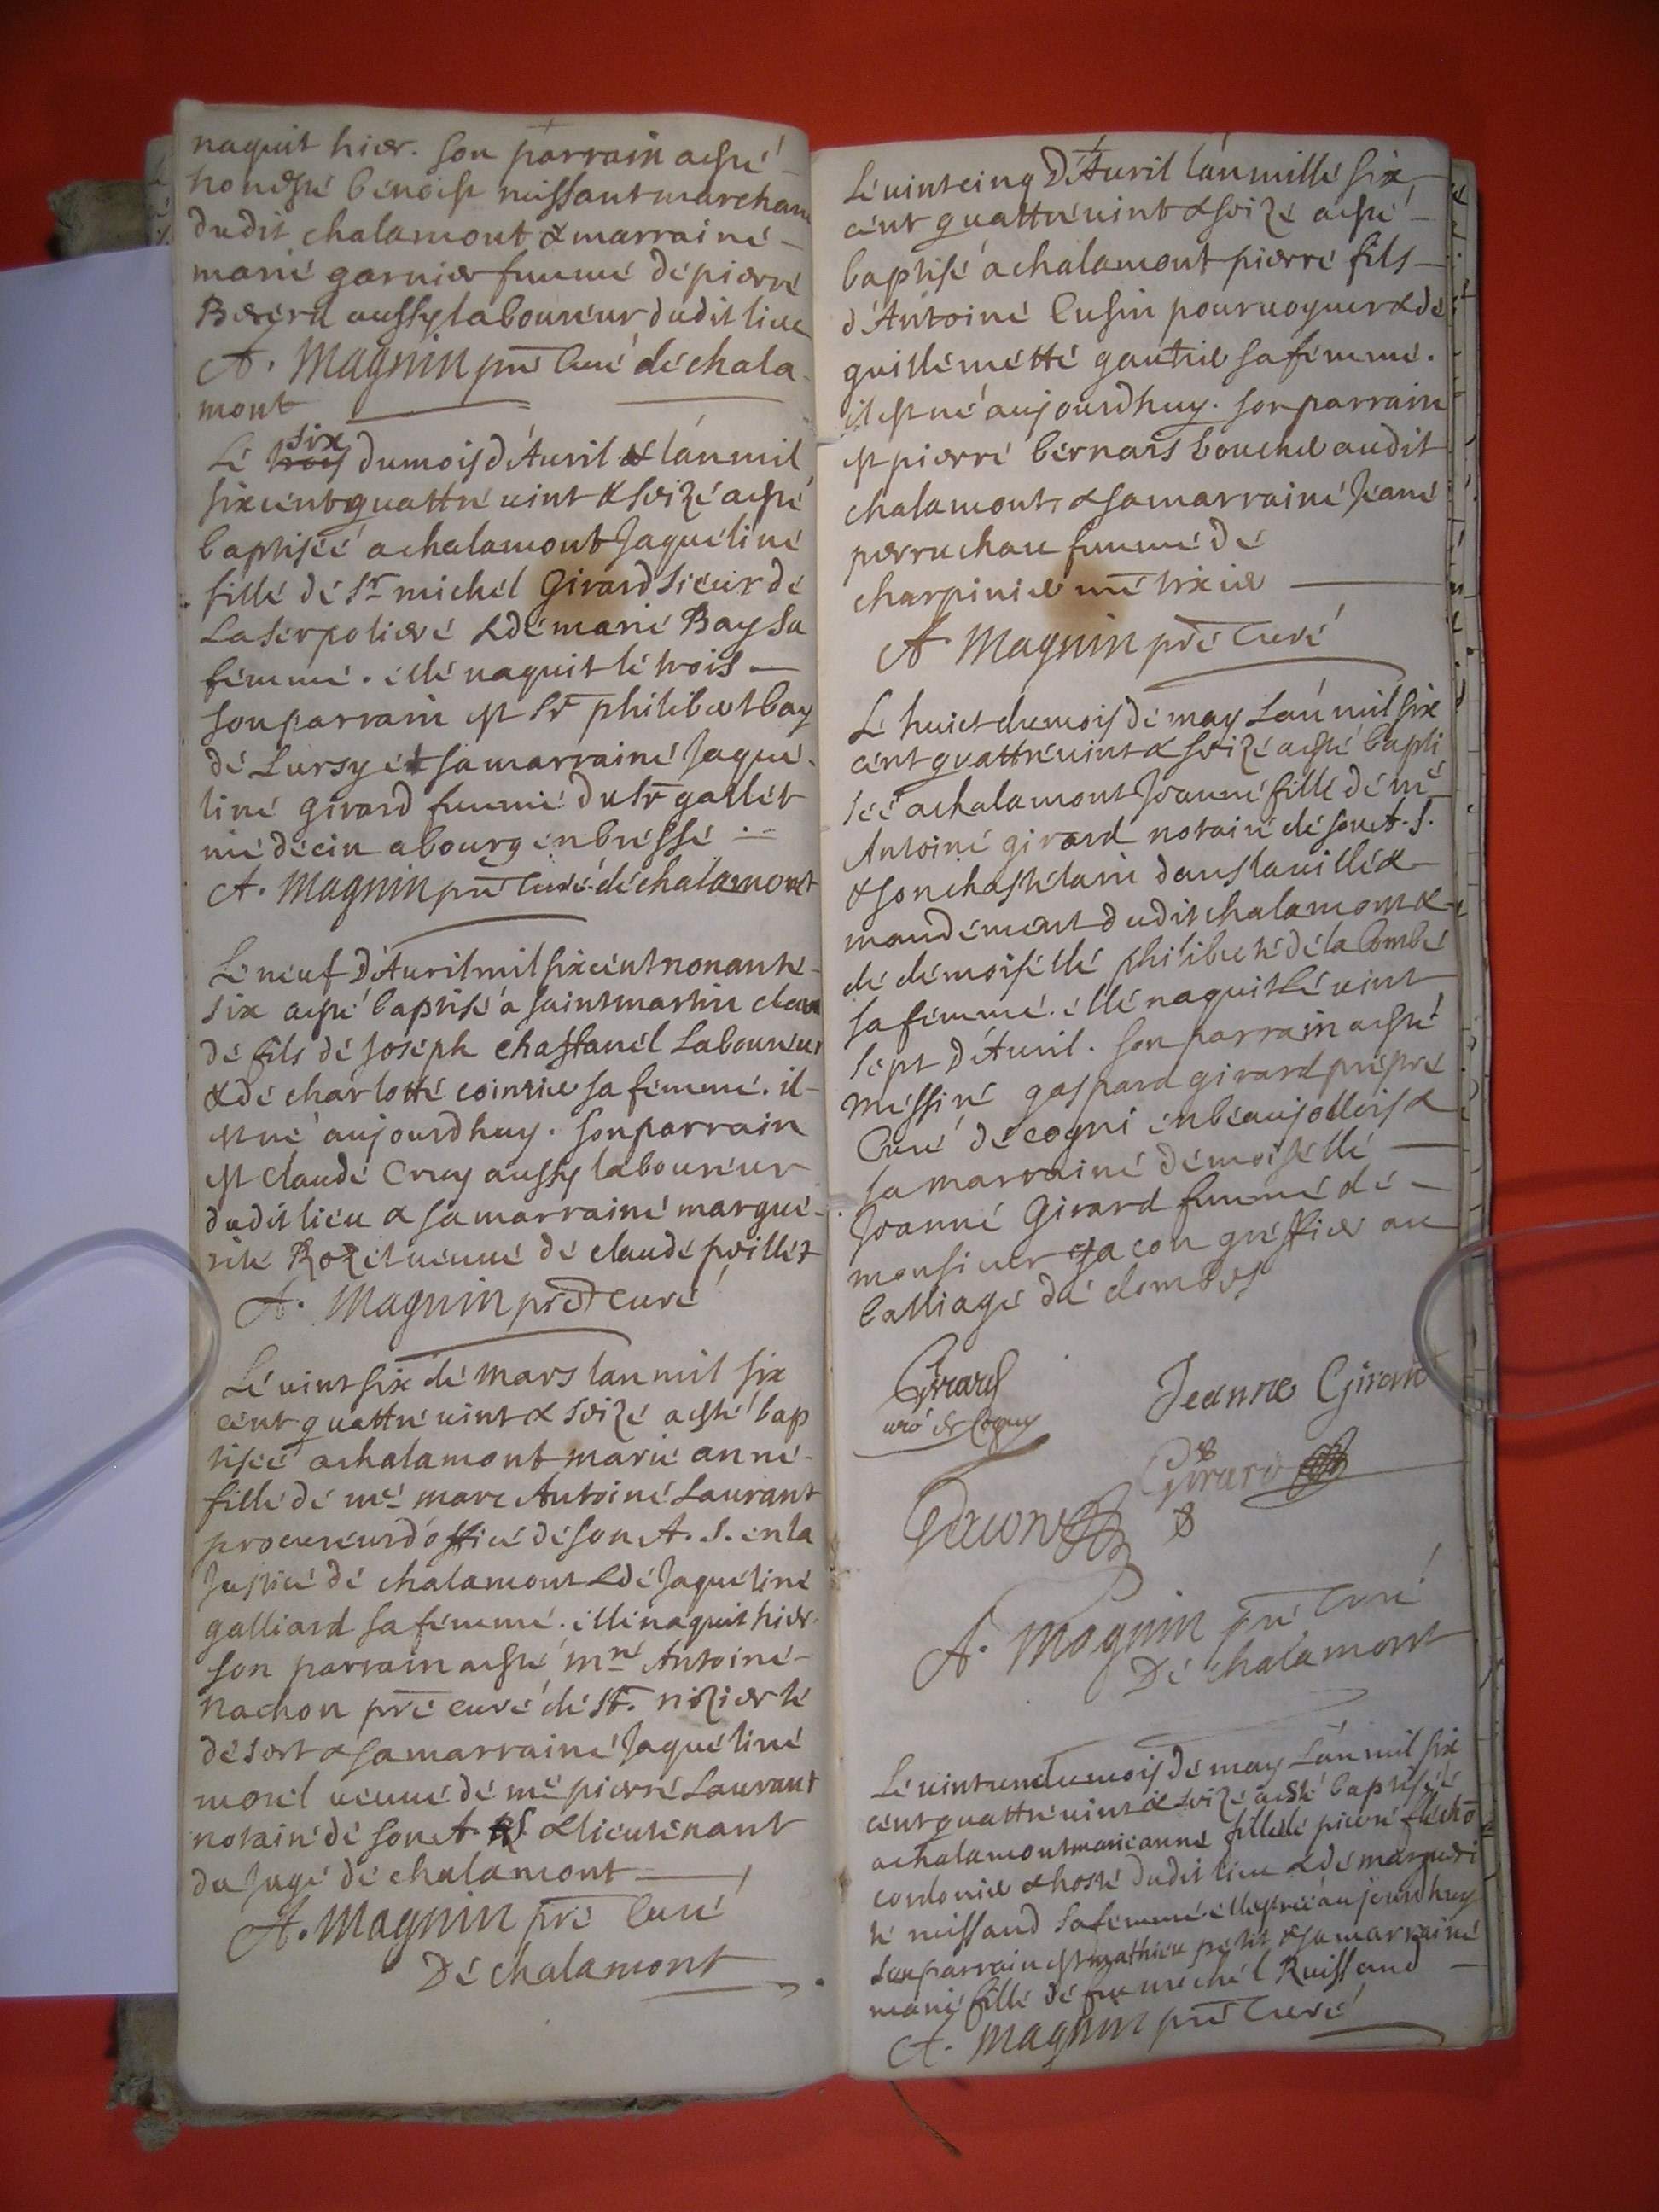 naquit hier. son parrain a esté
honesté benoist nissant marchan
dudit chalamont & marrainé
marié garnier fummé dé pierré
Bererd aussy laboureur dudit lieu
A. Magnin pre Curé dé chala
mont
Lé six du mois d'Auril lán mil
six cent quattré uint & séizé a esté
baptiséé a chalamont Jaquéliné
fillé dé sr michél Girard sieur dé
Laserpolieré & dé marié Bay sa
fémmé. éllé naquit lé trois
son parrain est sr philibert bay
dé Lursy ét sa marrainé Jaqué
liné girard fummé du sr gallét
médécin a bourg én bréssé
A. Magnin pre Curé dé chalamont
Lé neuf d'Auril mil six cént nonanté
six a esté baptisé a saint martin clau
dé fils dé Joséph chassanél Labouréur
& dé charlotté cointier sa fémmé. il
est né aujourdhuy. son parrain
est claudé Cruy aussy labouréur
dudit liéu & sa marrainé margué
rité Rozét ueuué dé claudé poillét
A. Magnin pre Curé
Lé uint six dé Mars lan mil six
cént quattré uint & séizé a esté bap
tiséé a chalamont marié anné
fillé dé mé marc Antoiné Laurant
procuréur d'officé dé son A. S. en la
Justicé dé chalamont & dé Jaquéliné
galliard sa fémmé. éllé naquit hier
son parrain a esté mré Antoiné
Nachon pre curé dé st. nizier lé
désert & sa marrainé Jaquéliné
morél ueuué dé mé pierré Laurant
notairé dé son A. S. & lieuténant
du Jugé dé chalamont
A. Magnin pre Curé
Dé chalamont
Lé uintcinq D'Auril lán millé six
cént quattré uint & séizé a esté
baptisé a chalamont pierré fils
d'Antoiné Cusin pouruoyeur & dé
guillémétté gautier sa fémmé.
il est né aujourdhuy. son parrain
est pierré bérnard boucher audit
chalamont & sa marrainé Jéané
perruchau fummé dé
charpinier mé tixier
A. Magnin pre Curé
Lé huict du mois dé may Lán mil six
cént quattré uint & séizé a esté bapti
séé a chalamont Joanné fillé dé mé
Antoiné girard notairé dé son A. S.
& son chastélain dans la uillé &
mandément dudit chalamont &
dé démoiséllé philiberté dé la Combé
sa fémmé. éllé naquit lé uint
sept d'Auril. son parrain a esté
méssiré gaspard girard préstré
Curé dé cogni én béaujollois &
sa marrainé démoiséllé
Joanné Girard fummé dé
monsieur Jacon gréffier au
balliagé dé dombes
Girard
curé de Cogny
Jeanne Girard
Girard
Jacon
A. Magnin pre Curé
Dé chalamont
Lé uint un du mois dé may Lán mil six
cént quattré uint & séizé a esté baptiséé
a chalamont marié anné fillé dé pierré fléchó
cordonier & hosté dudit lieu & dé marguéri
té nissand sa fémmé éllé est néé aujourdhuy
son parrain est mathieu pétit & sa marrainé
marié fillé dé feu michél Ruissand
A. Magnin pre Curé